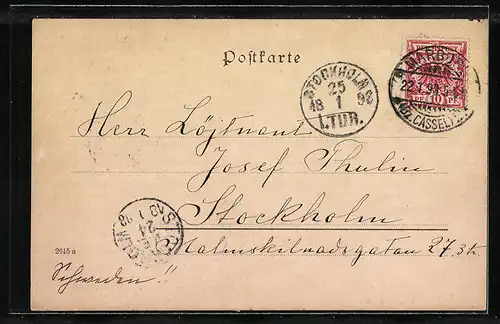 Postkarte
STOCKHOLM
25
18 1 98
1. TUR.
MARBURG
22 1 98
(BZ. CASSEL)
10 PF
Herr Löjtnant
Josef Thulin
Stockholm
Malmskilnadsgatan 27. 3 tr.
24
2615a
Schweden!!